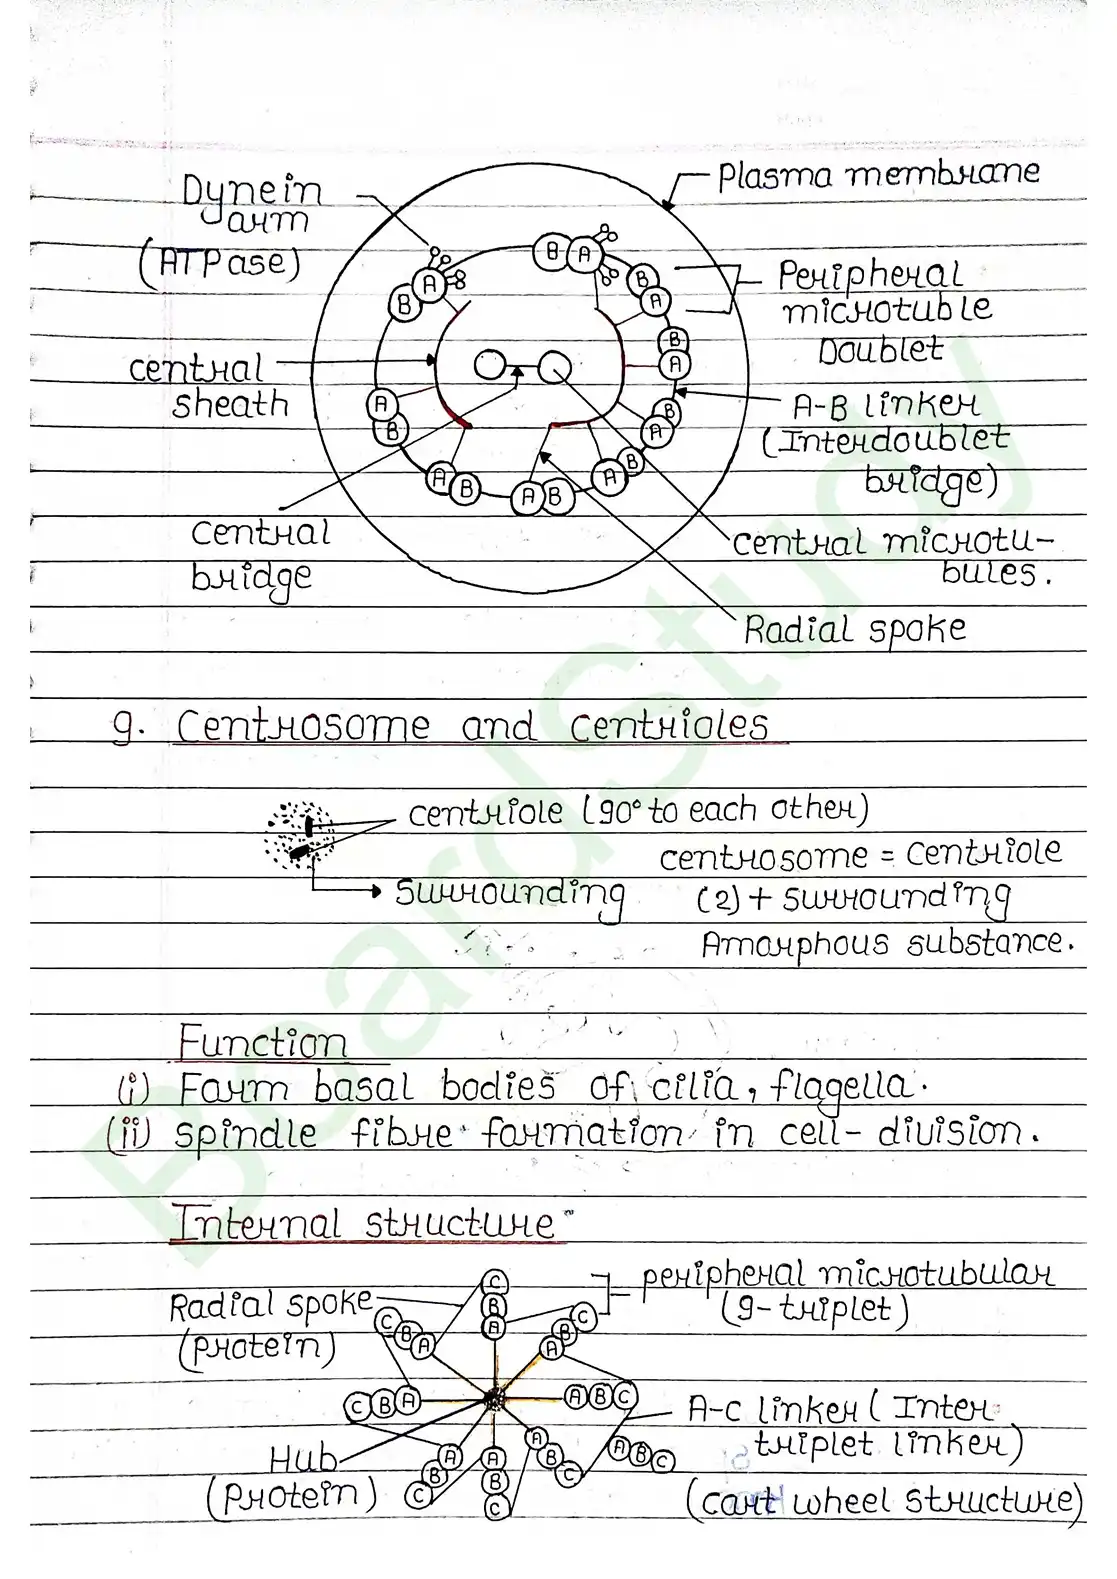 Dynein
arm
(ATPase)
Plasma membrane
Peripheral
microtuble
Doublet
central
sheath
A-B linker
(Interdoublet
bridge)
central
bridge
central microtu-
bules.
Radial spoke
B A
B A
B A
B A
B A
B A
A B
A B
A B
9. Centrosome and centrioles
centriole (90° to each other)
centrosome = centriole
surrounding (2) + surrounding
Amorphous substance.
Function
(i) Form basal bodies of cilia, flagella.
(ii) spindle fibre formation in cell-division.
Internal structure
Radial spoke
(protein)
peripheral microtubular
(9-triplet)
C B A
C B A
A B C
C B A
A B C
A B C
A B C
A B C
A B C
A-C linker (Inter
triplet linker)
Hub
(Protein)
(cart wheel structure)
BoardStudy